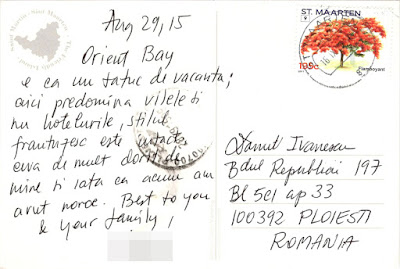 Aug 29, 15
Orient Bay
e ca un satuc de vacanta;
aici predomina vilele si
nu hotelurile, stilul
frantuzesc este intact,
ceva de mult dorit de
mine si iata ca acum am
avut noroc. Best to you
& your family!
ST. MAARTEN
195c
Flamboyant
Danut Ivanescu
Bdul Republicii 197
Bl 5e1 ap 33
100392 PLOIESTI
ROMANIA